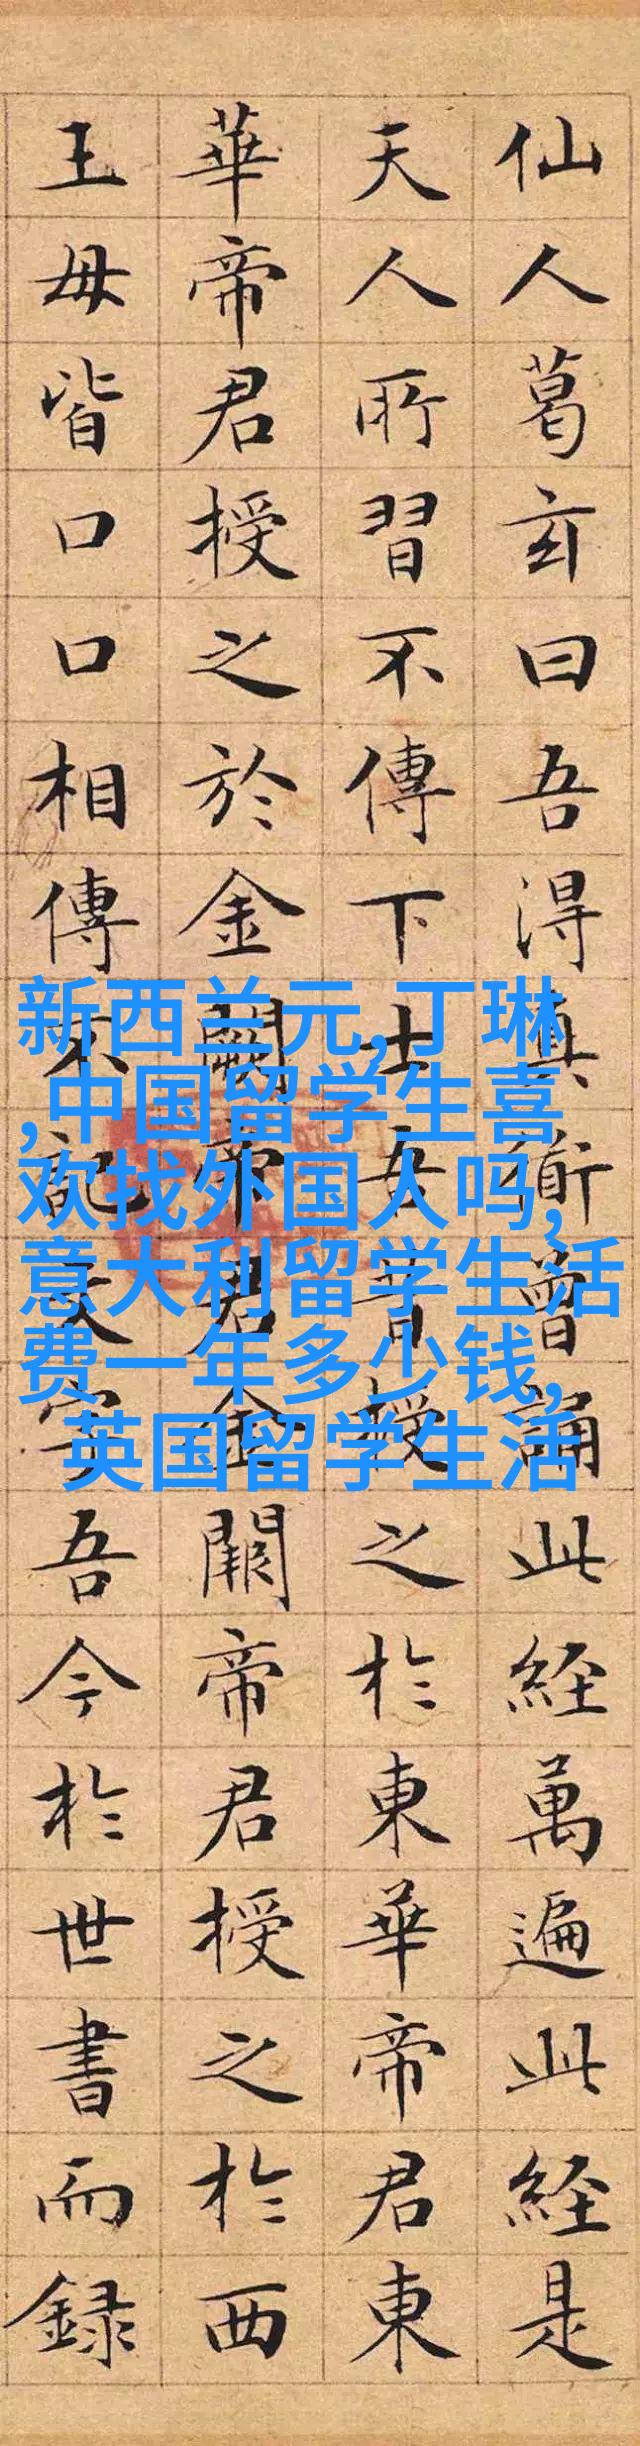 仙人葛玄曰吾得真衜曾誦此経萬遍此経是
天人所習不傳下士吾昔授之於東華帝君東
華帝君授之於金闕帝君金闕帝君授之於西
王母皆口口相傳不記文字吾今於世書而録
新西兰元,丁琳
,中国留学生喜
欢找外国人吗,
意大利留学生活
费一年多少钱,
英国留学生活